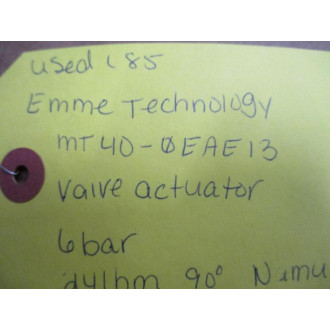 used L85
Emme Technology
MT40-ØEAE13
Valve actuator
6bar
90°